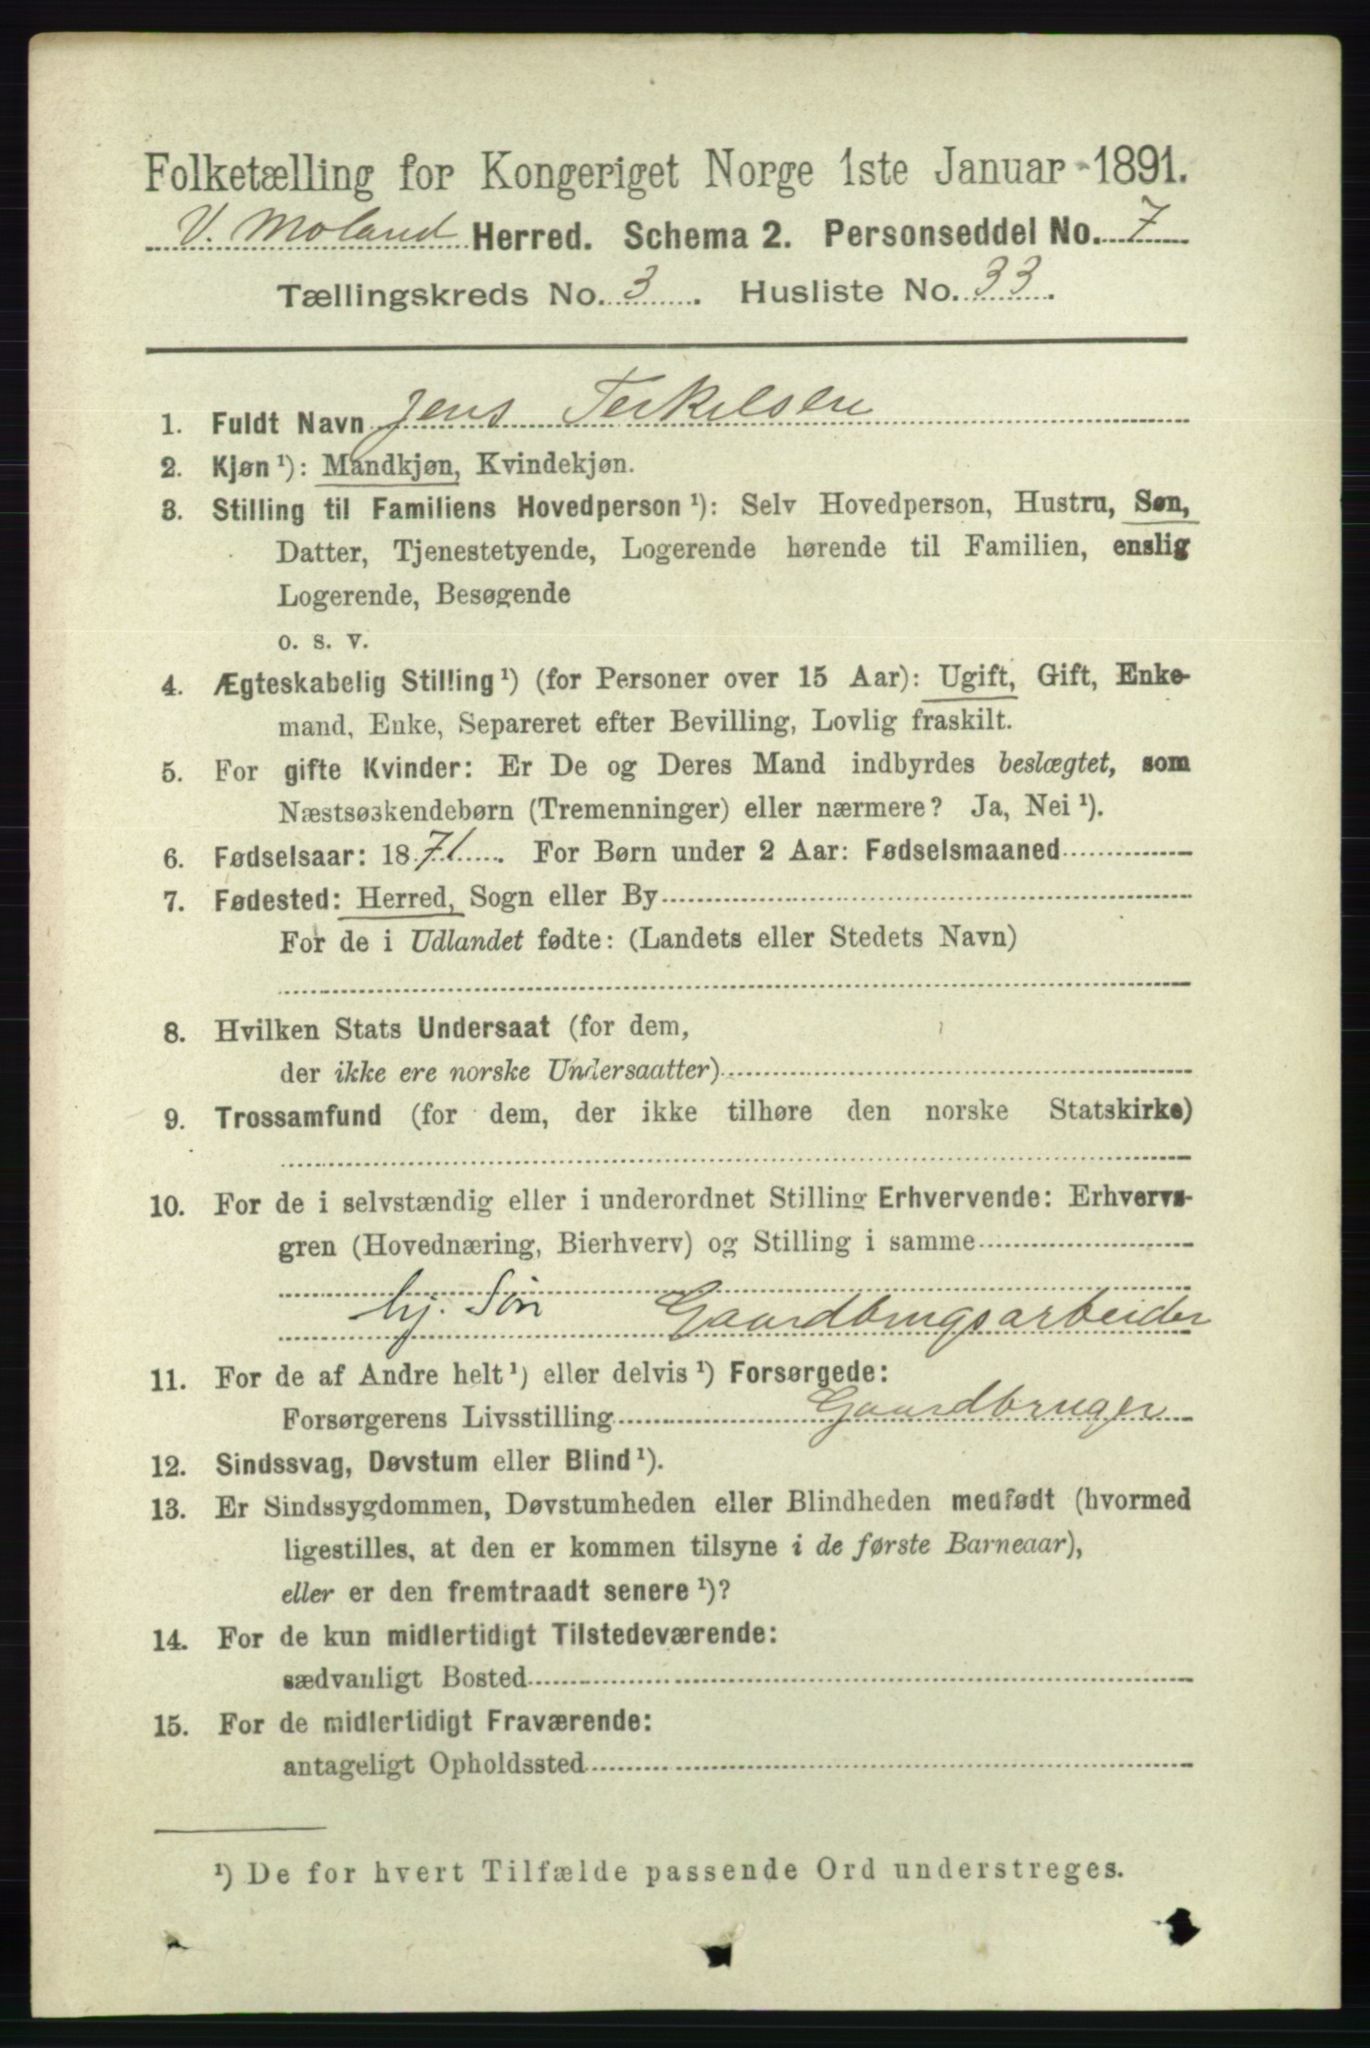 Folketælling for Kongeriget Norge 1ste Januar 1891.
V. Moland Herred. Schema 2. Personseddel No. 7
Tællingskreds No. 3. Husliste No. 33.
1. Fuldt Navn Jens Terkelsen
2. Kjøn ¹): Mandkjøn, Kvindekjøn.
3. Stilling til Familiens Hovedperson ¹): Selv Hovedperson, Hustru, Søn,
Datter, Tjenestetyende, Logerende hørende til Familien, enslig
Logerende, Besøgende
o. s. v.
4. Ægteskabelig Stilling ¹) (for Personer over 15 Aar): Ugift, Gift, Enke-
mand, Enke, Separeret efter Bevilling, Lovlig fraskilt.
5. For gifte Kvinder: Er De og Deres Mand indbyrdes beslægtet, som
Næstsøskendebørn (Tremenninger) eller nærmere? Ja, Nei ¹).
6. Fødselsaar: 1871. For Børn under 2 Aar: Fødselsmaaned
7. Fødested: Herred, Sogn eller By
For de i Udlandet fødte: (Landets eller Stedets Navn)
8. Hvilken Stats Undersaat (for dem,
der ikke ere norske Undersaatter)
9. Trossamfund (for dem, der ikke tilhøre den norske Statskirke)
10. For de i selvstændig eller i underordnet Stilling Erhvervende: Erhvervs-
gren (Hovednæring, Bierhverv) og Stilling i samme
hj. Søn Gaardbrugsarbeider
11. For de af Andre helt ¹) eller delvis ¹) Forsørgede:
Forsørgerens Livsstilling Gaardbruger
12. Sindssvag, Døvstum eller Blind ¹).
13. Er Sindssygdommen, Døvstumheden eller Blindheden medfødt (hvormed
ligestilles, at den er kommen tilsyne i de første Barneaar),
eller er den fremtraadt senere ¹)?
14. For de kun midlertidigt Tilstedeværende:
sædvanligt Bosted
15. For de midlertidigt Fraværende:
antageligt Opholdssted
¹) De for hvert Tilfælde passende Ord understreges.